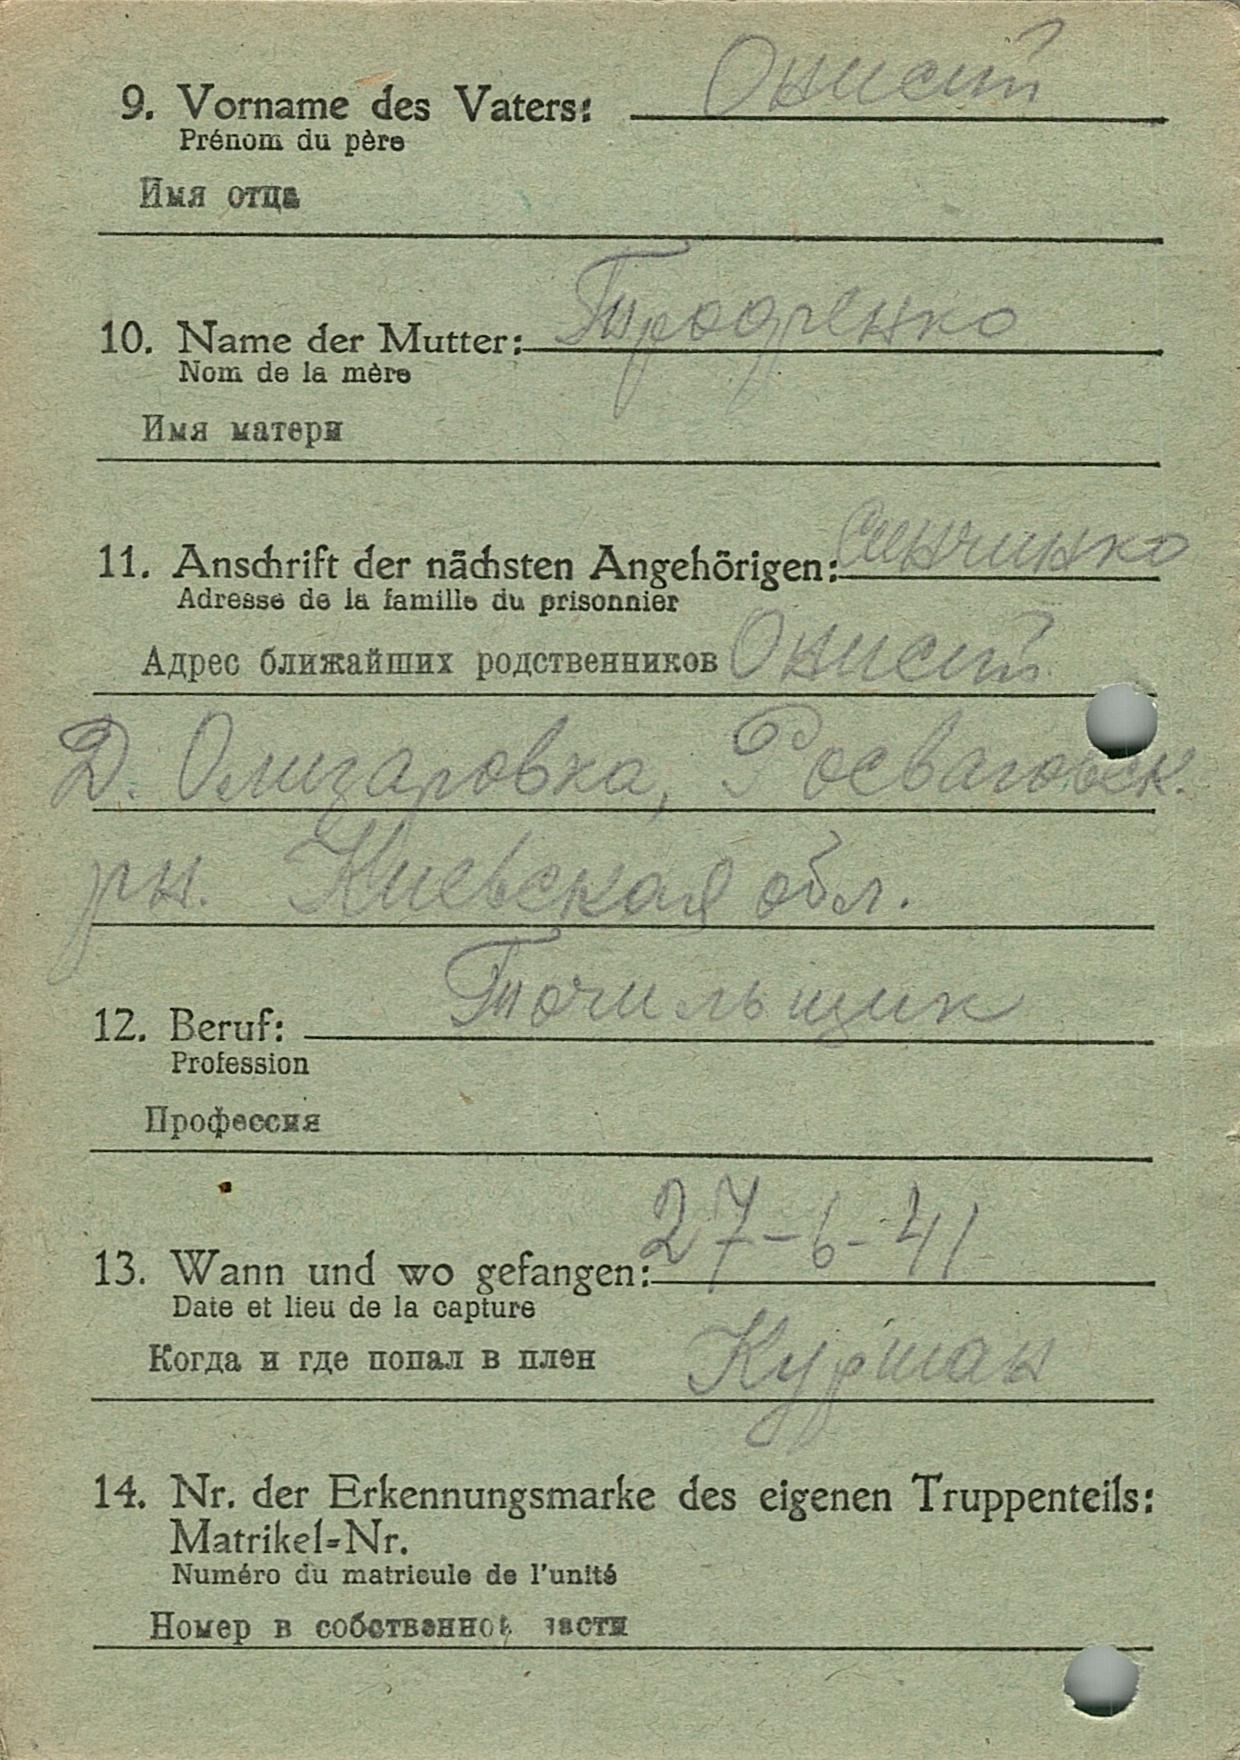 9. Vorname des Vaters: Онисий
Prénom du père
Имя отца
10. Name der Mutter:
Nom de la mère
Имя матери
11. Anschrift der nächsten Angehörigen: Сенчинко
Adresse de la famille du prisonnier
Адрес ближайших родственников Онисий
Д. Олизаровка, Росваговск.
рн. Киевская обл.
12. Beruf: Точильщик
Profession
Профессия
13. Wann und wo gefangen: 27-6-41
Date et lieu de la capture
Когда и где попал в плен Куршан
14. Nr. der Erkennungsmarke des eigenen Truppenteils:
Matrikel-Nr.
Numéro du matricule de l'unité
Номер в собственной части